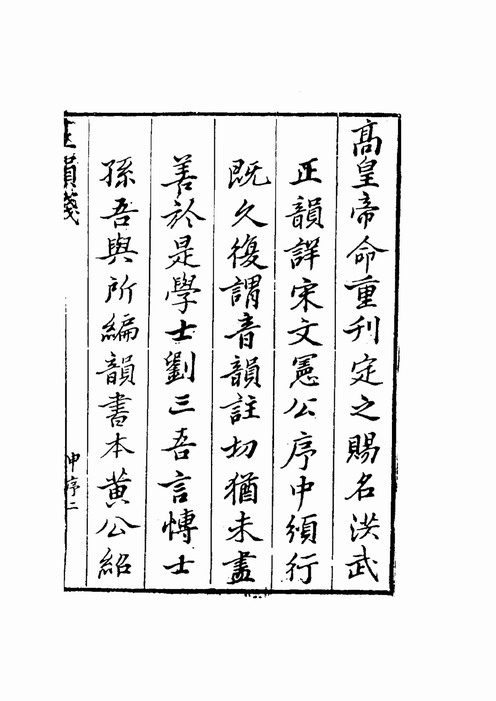 高皇帝命重刊定之賜名洪武
正韻詳宋文憲公序中頒行
既久復謂音韻註切猶未盡
善於是學士劉三吾言博士
孫吾與所編韻書本黃公紹
正韻箋
申序二